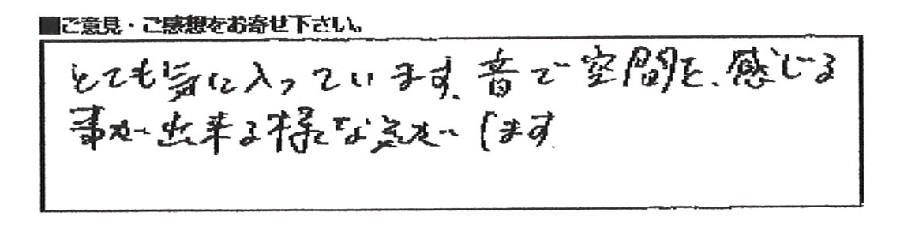 ■ご意見・ご感想をお寄せ下さい。
とても気に入っています。音で空間を、感じる
事が出来る様な気がします